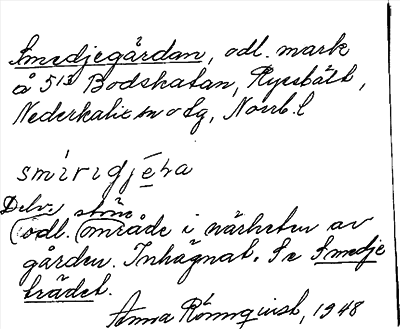 Smedjegården, odl. mark
å 5¹³ Bodskatan, Ryssbält,
Nederkalix sn o tg, Norrb. l
smìrigjéṇa
Delv. större
odl. område i närheten av
gården. Inhägnat. Se Smedje
trädet.
Anna Rönnqvist, 1948